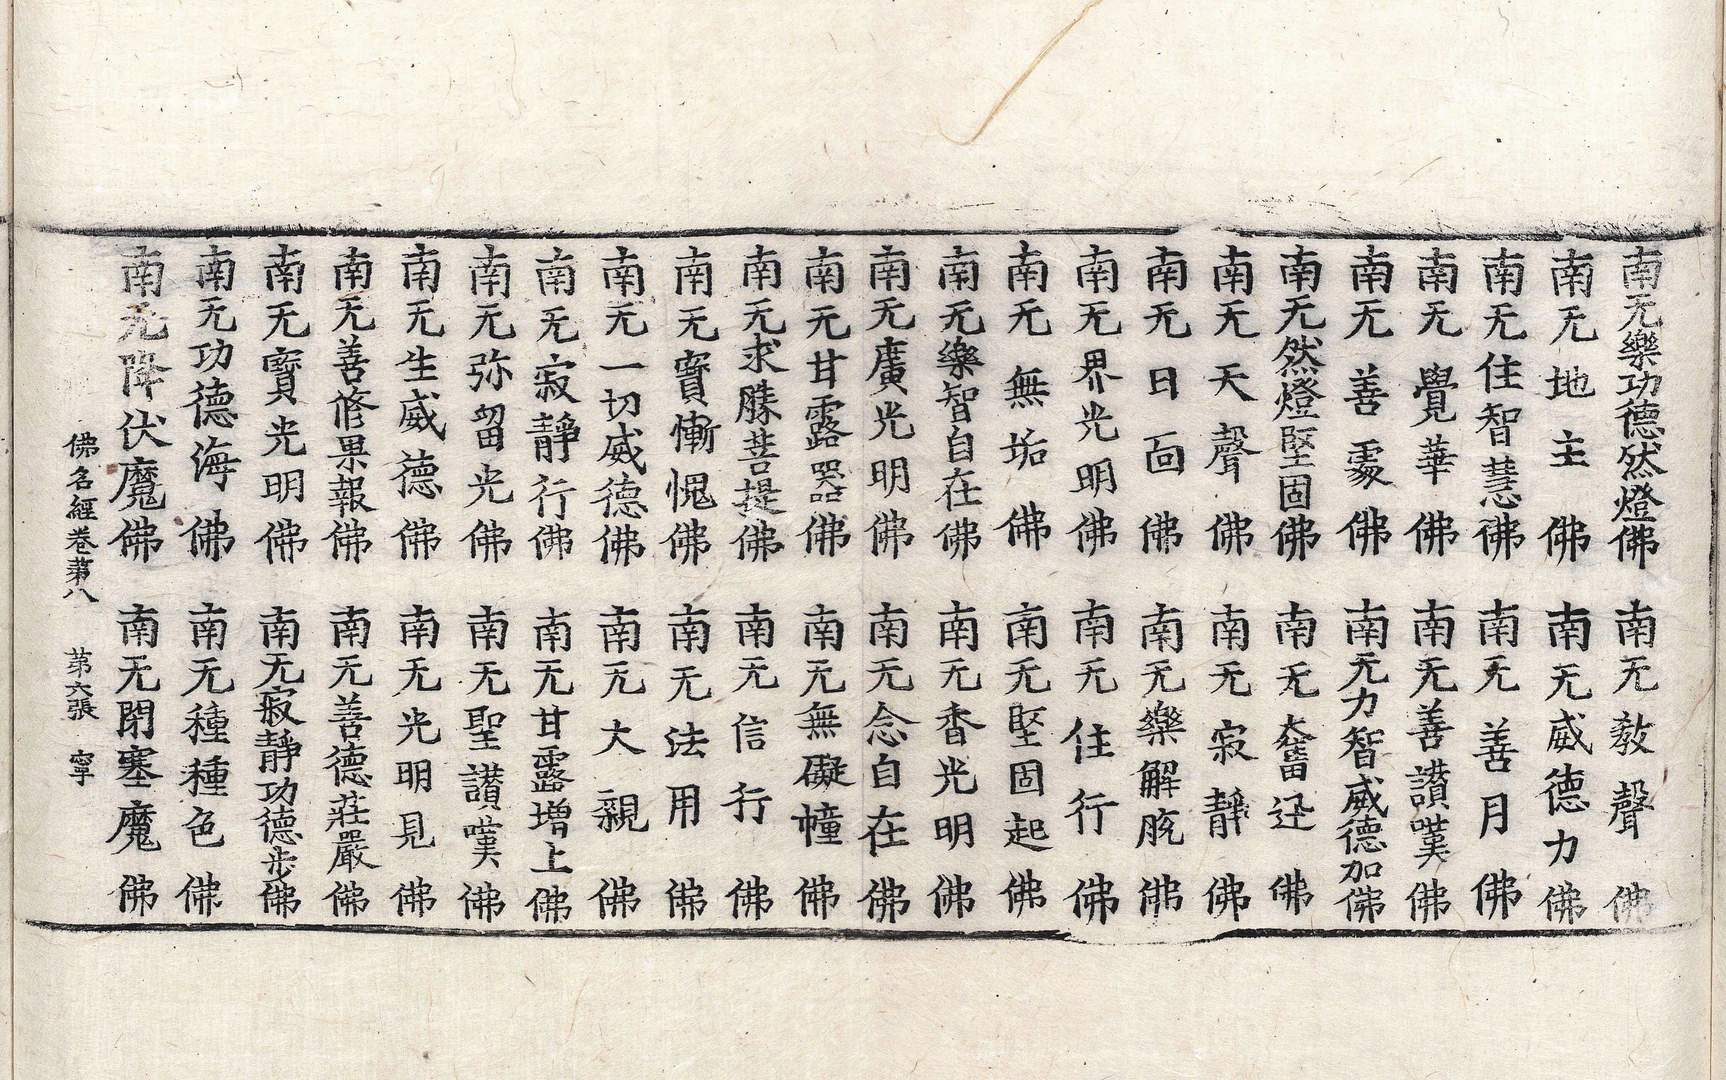 南无樂功德然燈佛 南无教聲佛
南无地主佛 南无威德力佛
南无住智慧佛 南无善月佛
南无覺華佛 南无善讃嘆佛
南无善䖏佛 南无力智威德加佛
南无然燈堅固佛 南无奮迅佛
南无天聲佛 南无寂靜佛
南无日面佛 南无樂解脫佛
南无界光明佛 南无住行佛
南无無垢佛 南无堅固起佛
南无樂智自在佛 南无香光明佛
南无廣光明佛 南无念自在佛
南无甘露器佛 南无無礙幢佛
南无求勝菩提佛 南无信行佛
南无寳慚愧佛 南无法用佛
南无一切威德佛 南无大親佛
南无寂靜行佛 南无甘露增上佛
南无弥留光佛 南无聖讃嘆佛
南无生威德佛 南无光明見佛
南无善修果報佛 南无善德莊嚴佛
南无寳光明佛 南无寂靜功德步佛
南无功德海佛 南无種種色佛
南无降伏魔佛 南无閇塞魔佛
佛名經卷苐八 苐六張 寧